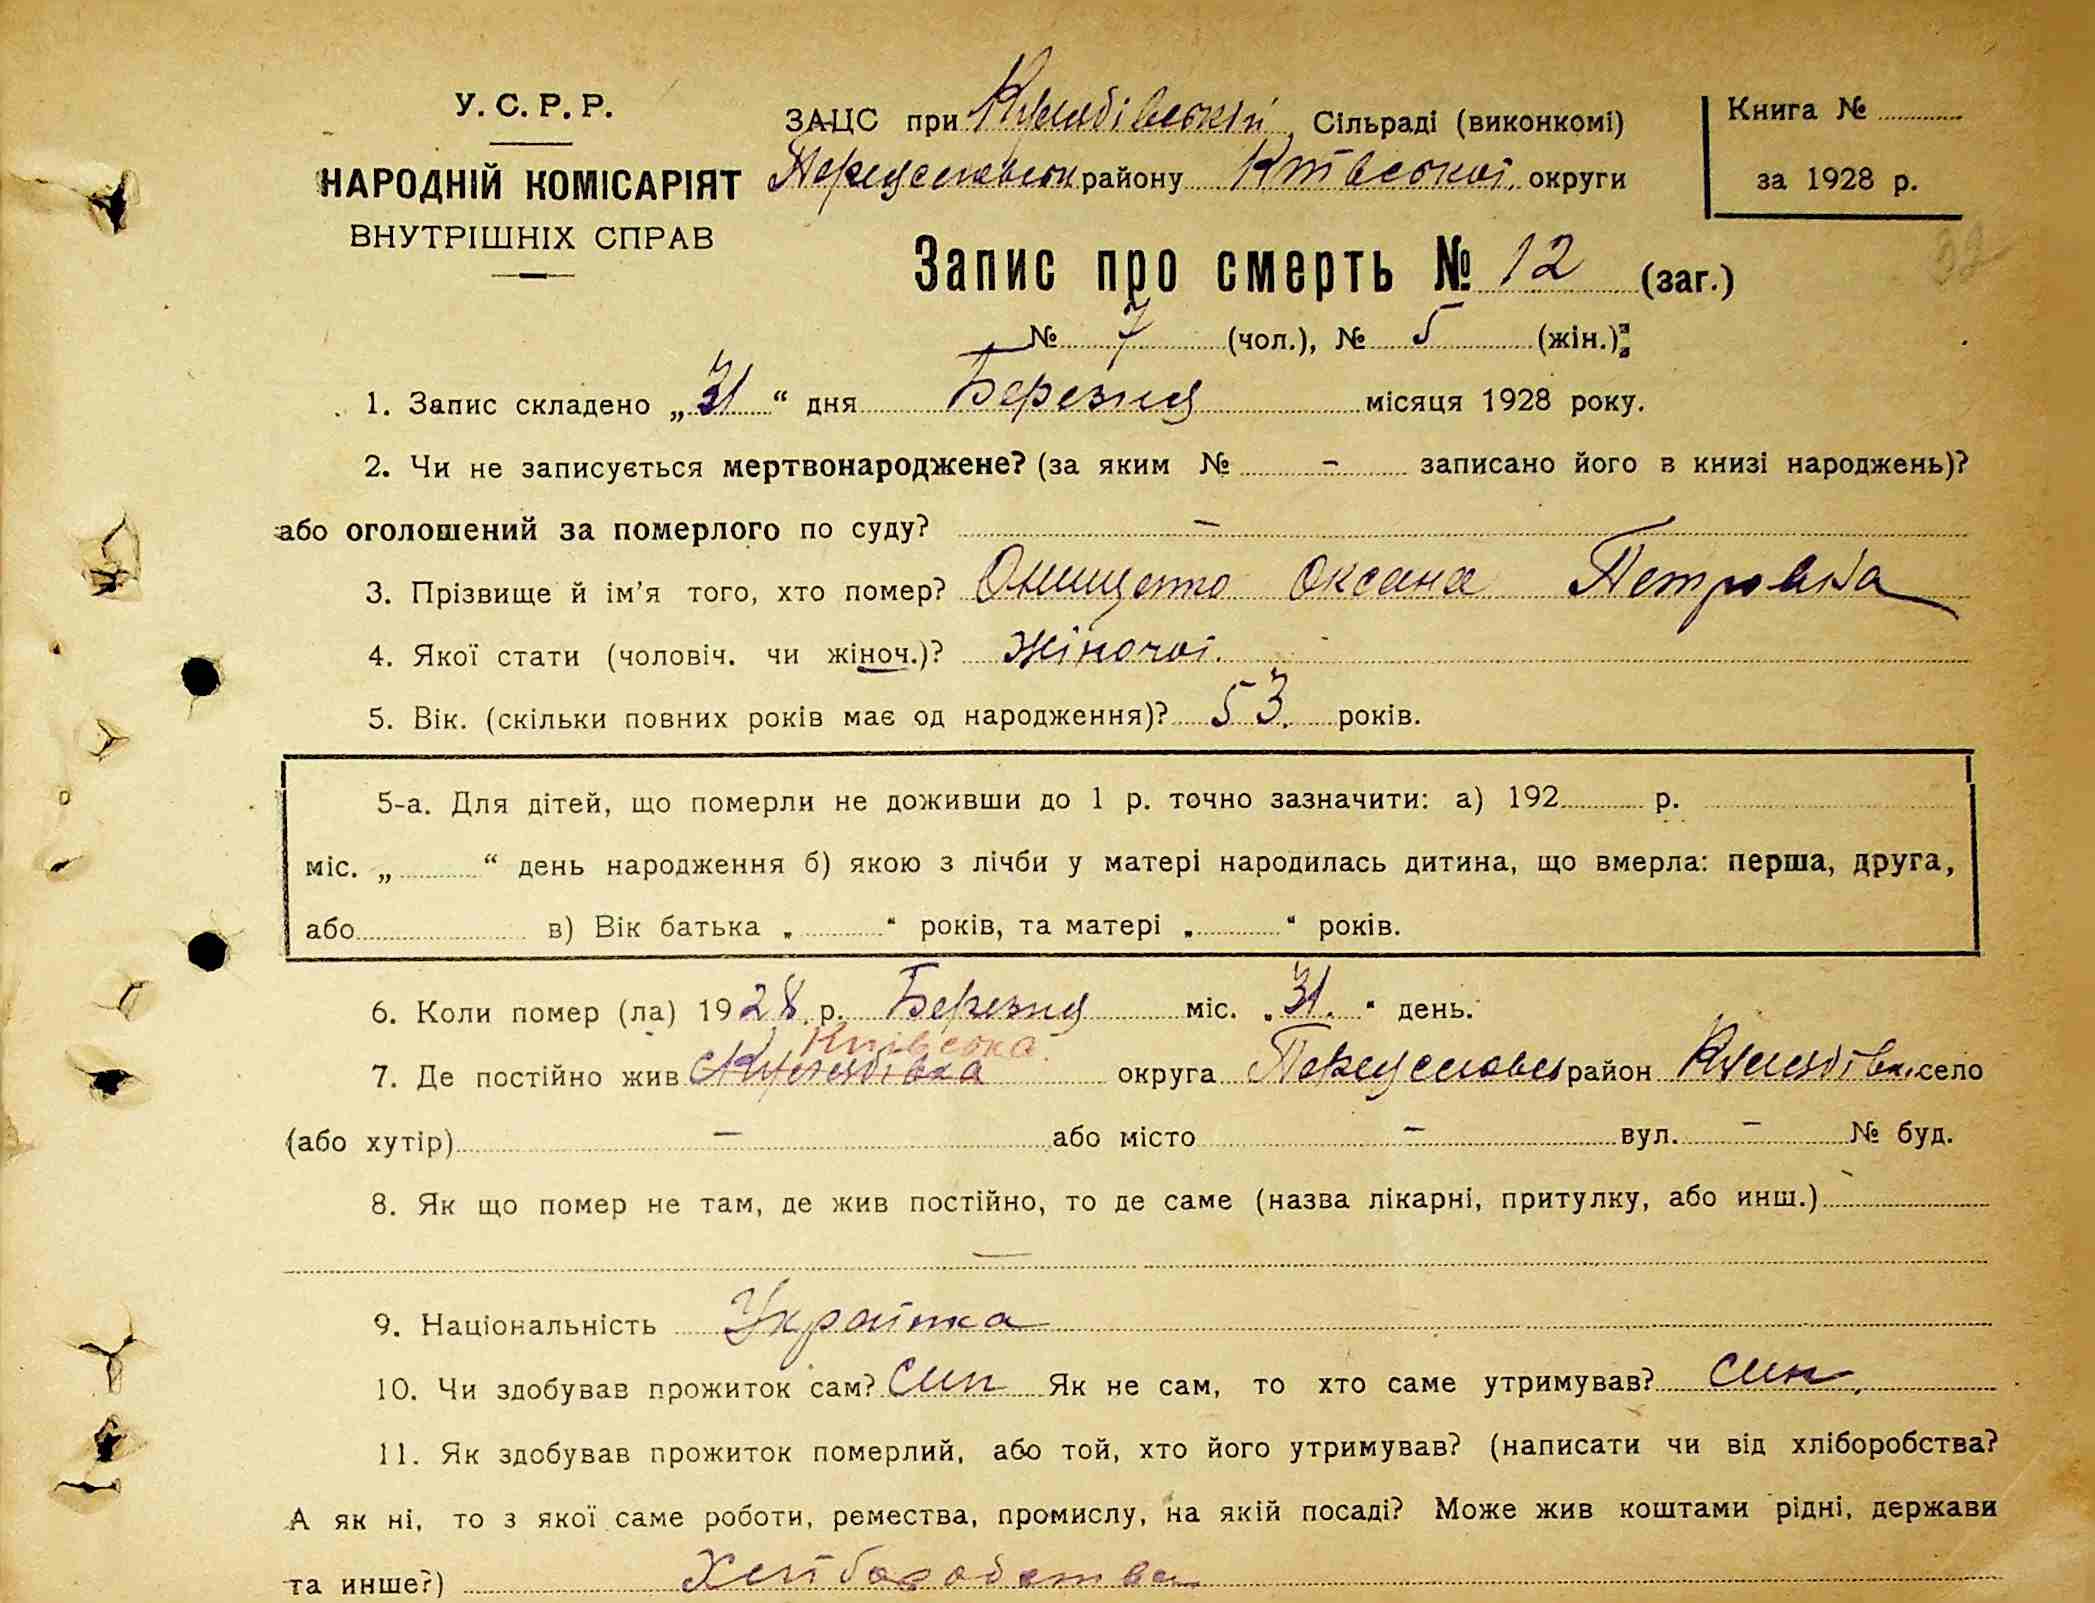 У. С. Р. Р.
НАРОДНІЙ КОМІСАРІЯТ
ВНУТРІШНІХ СПРАВ
ЗАЦС при Сільраді (виконкомі)
району Київської округи
Книга №
за 1928 р.
Запис про смерть № 12 (заг.)
№ 7 (чол.), № 5 (жін.)
1. Запис складено „31“ дня Березня місяця 1928 року.
2. Чи не записується мертвонароджене? (за яким № - записано його в книзі народжень)?
або оголошений за померлого по суду? —
3. Прізвище й ім'я того, хто помер? Онищенко Оксана Петровна
4. Якої стати (чоловіч. чи жіноч.)? Жіночої.
5. Вік. (скільки повних років має од народження)? 53. років.
5-а. Для дітей, що померли не доживши до 1 р. точно зазначити: а) 192 р.
міс. „ “ день народження б) якою з лічби у матері народилась дитина, що вмерла: перша, друга,
або в) Вік батька „ “ років, та матері „ “ років.
6. Коли помер (ла) 1928 р. Березня міс. „31.“ день.
Київська
7. Де постійно жив округа район село
(або хутір) — або місто — вул. — № буд.
8. Як що помер не там, де жив постійно, то де саме (назва лікарні, притулку, або инш.)
—
9. Національність Українка
10. Чи здобував прожиток сам? Син Як не сам, то хто саме утримував? син.
11. Як здобував прожиток померлий, або той, хто його утримував? (написати чи від хліборобства?
А як ні, то з якої саме роботи, ремества, промислу, на якій посаді? Може жив коштами рідні, держави
та инше?) Хліборобства